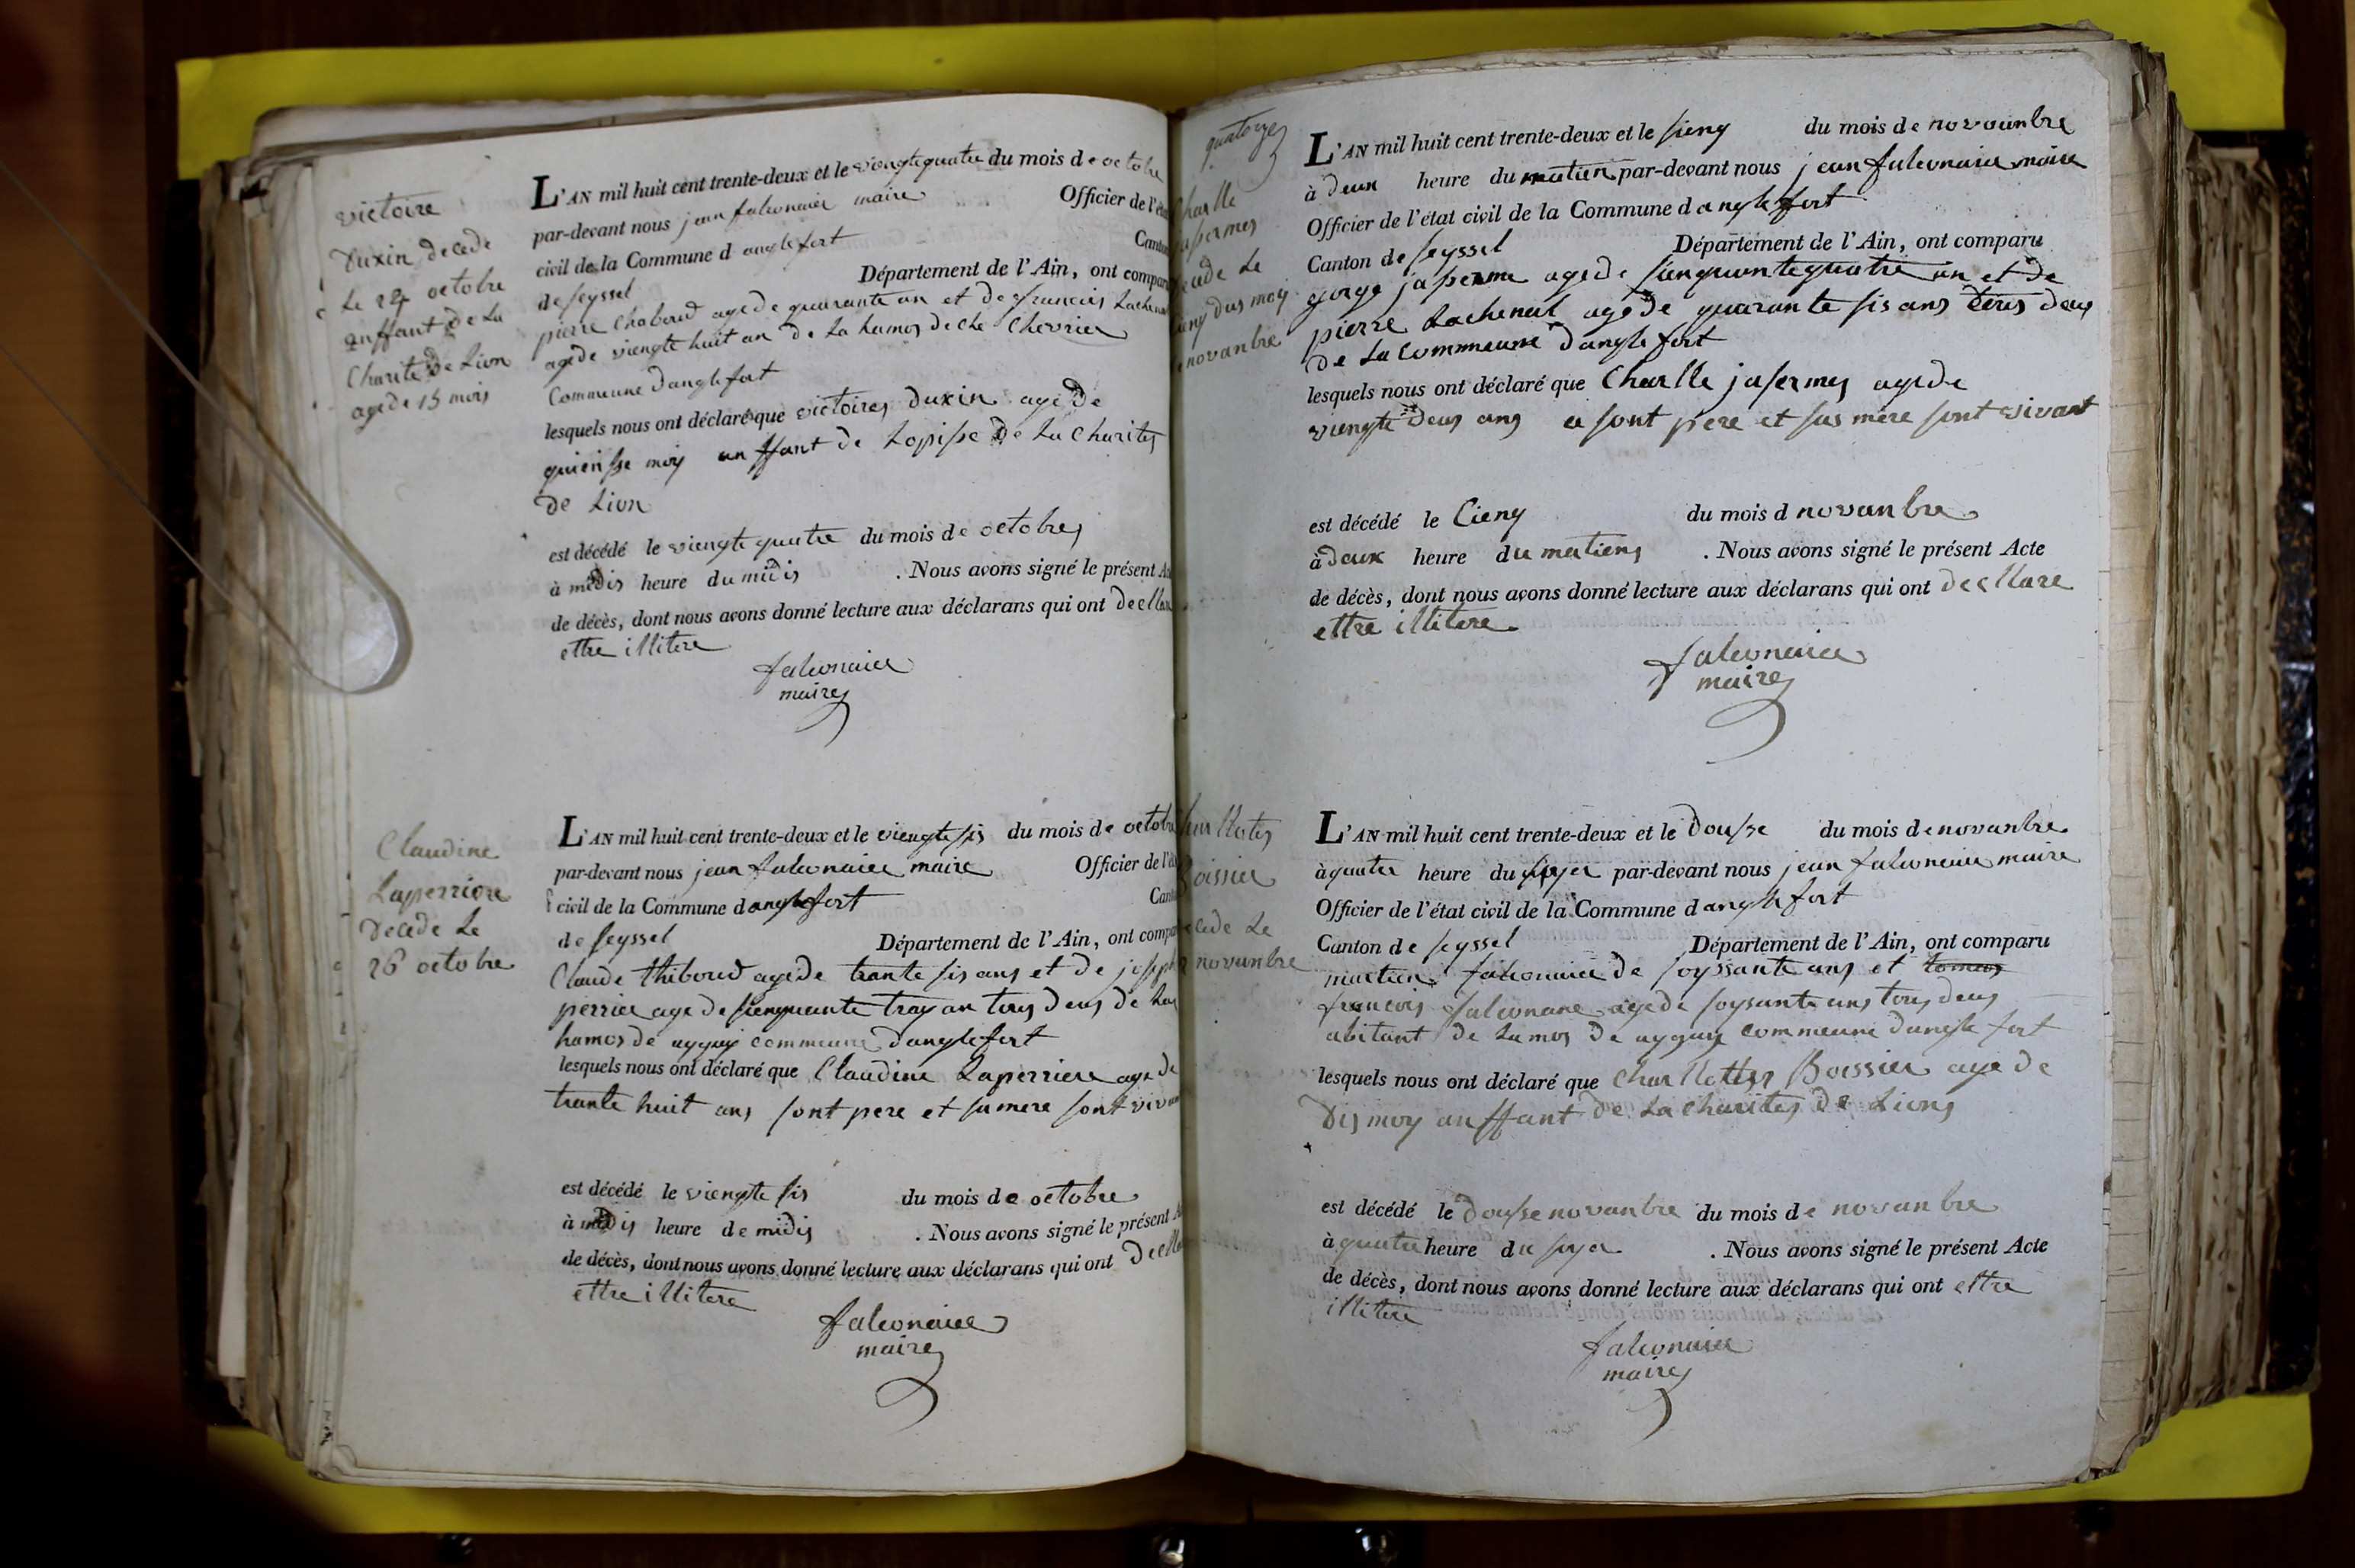 victoire
Duxin decede
Le 24 octobre
anffant de La
Charite de Lion
agede 15 mois
L'AN mil huit cent trente-deux et le viengtequatre du mois de octobre
par-devant nous jean falconnier maire Officier de l'éta
civil de la Commune d anglefort Canton
de seyssel Département de l'Ain, ont compar
pierre Chaboud agede quarante an et de francois Lachena
agede viengte huit an de La hamos deche Chevrier
Commeune danglefort
lesquels nous ont déclaré que victoires Duxin agede
quiensse moy anffant de Lopisse de La Charites
de Lion
est décédé le viengte quatre du mois de octobres
à midis heure du midis . Nous avons signé le présent Ac
de décès, dont nous avons donné lecture aux déclarans qui ont decllar
ettre illitere
falconnier
maire
Claudine
Laperriere
decede Le
26 octobre
L'AN mil huit cent trente-deux et le viengte sis du mois de octobr
par-devant nous jean falconnier maire Officier de l'ét
civil de la Commune d anglefort Cant
de seyssel Département de l'Ain, ont compa
Claude thiboud agede trante sis ans et de joseph
perrier agede sienquante troy an tous deus de La
hamos de commeune danglefort
lesquels nous ont déclaré que Claudine Laperriere agede
trante huit ans sont pere et sa mere sont vivan
est décédé le viengte sis du mois de octobre
à midis heure de midis . Nous avons signé le présent A
de décès, dont nous avons donné lecture aux déclarans qui ont decllar
ettre illitere
falconnier
maire
quatorze
Charlle
jasermes
ecede Le
sieng dus moy
novanbre
L'AN mil huit cent trente-deux et le sieng du mois de novounbre
à deux heure du matien par-devant nous jean falconnier maire
Officier de l'état civil de la Commune d anglefort
Canton de seyssel Département de l'Ain, ont comparu
gorge jaserme agede sienquantequatre an et de
pierre Lachenal agede quarante sis ans tous deus
de La Commeune danglefort
lesquels nous ont déclaré que Charlle jasermes agede
viengte deus ans sont pere et sas mere sont vivant
est décédé le Cieng du mois d novanbre
à deux heure du matieng . Nous avons signé le présent Acte
de décès, dont nous avons donné lecture aux déclarans qui ont decllare
ettre illitere
falconnier
maire
harllotes
Boissier
ecede Le
novanbre
L'AN mil huit cent trente-deux et le dousse du mois de novanbre
à quatre heure du par-devant nous jean falconnier maire
Officier de l'état civil de la Commune d anglefort
Canton de seyssel Département de l'Ain, ont comparu
falconnier de soyssante ans et
francois falconnier agede soysante ans tous deus
abitant de commeune danglefort
lesquels nous ont déclaré que Boissier agede
Dis moy anffant de La Charites de Liong
est décédé le dousse novanbre du mois de novanbre
à quatre heure du soyer . Nous avons signé le présent Acte
de décès, dont nous avons donné lecture aux déclarans qui ont ettre
illitere
falconnier
maire